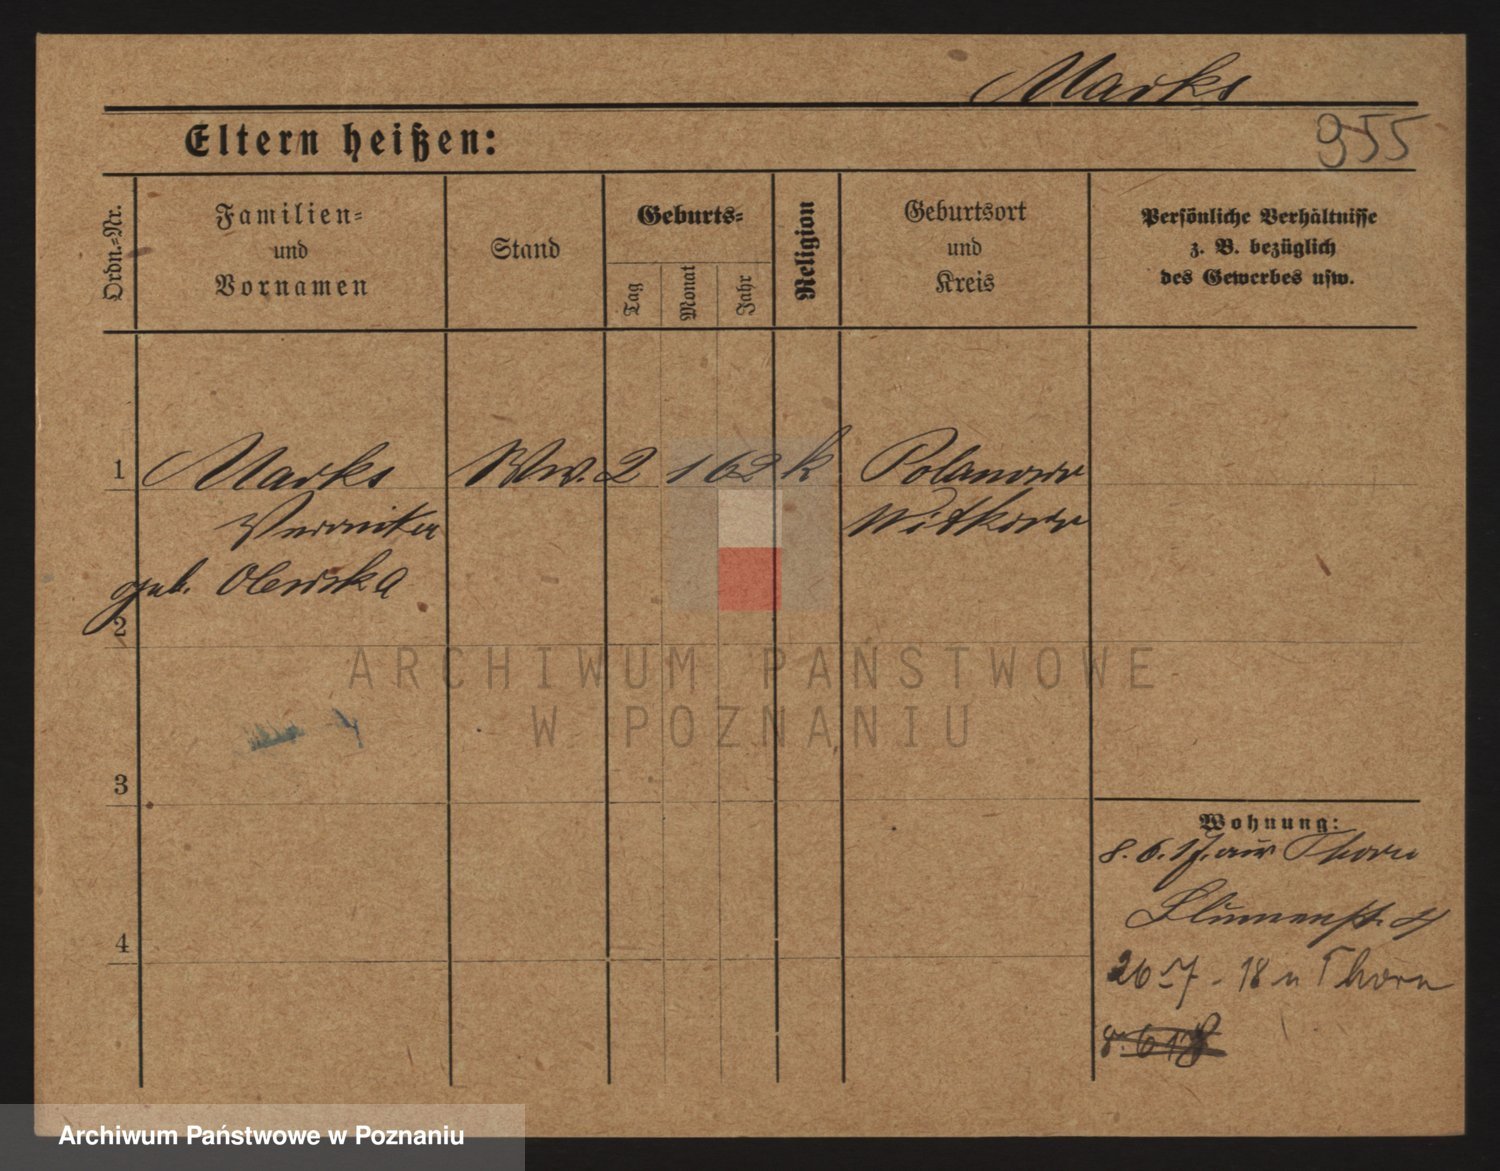 Marks
Eltern heißen:
955
Ordn.-Nr.
Familien-
und
Vornamen
Stand
Geburts-
Tag
Monat
Jahr
Religion
Geburtsort
und
Kreis
Persönliche Verhältnisse
z. B. bezüglich
des Gewerbes usw.
1
Marks
Ww.
2
1
62
k
Polanowo
Veronika
Witkowo
geb. Olewska
2
ARCHIWUM PAŃSTWOWE
W POZNANIU
3
Wohnung:
8. 6. 17. aus Thorn
Blumenstr.
4
26 - 7 - 18 n Thorn
8. 6 18
Archiwum Państwowe w Poznaniu